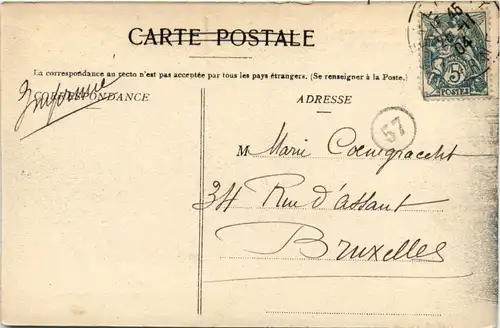 CARTE POSTALE
La correspondance au recto n'est pas acceptée par tous les pays étrangers. (Se renseigner à la Poste.)
CORRESPONDANCE
ADRESSE
57
M Marie Coenegracht
34 Rue d'assaut
Bruxelles
15
11
04
5c
POSTES